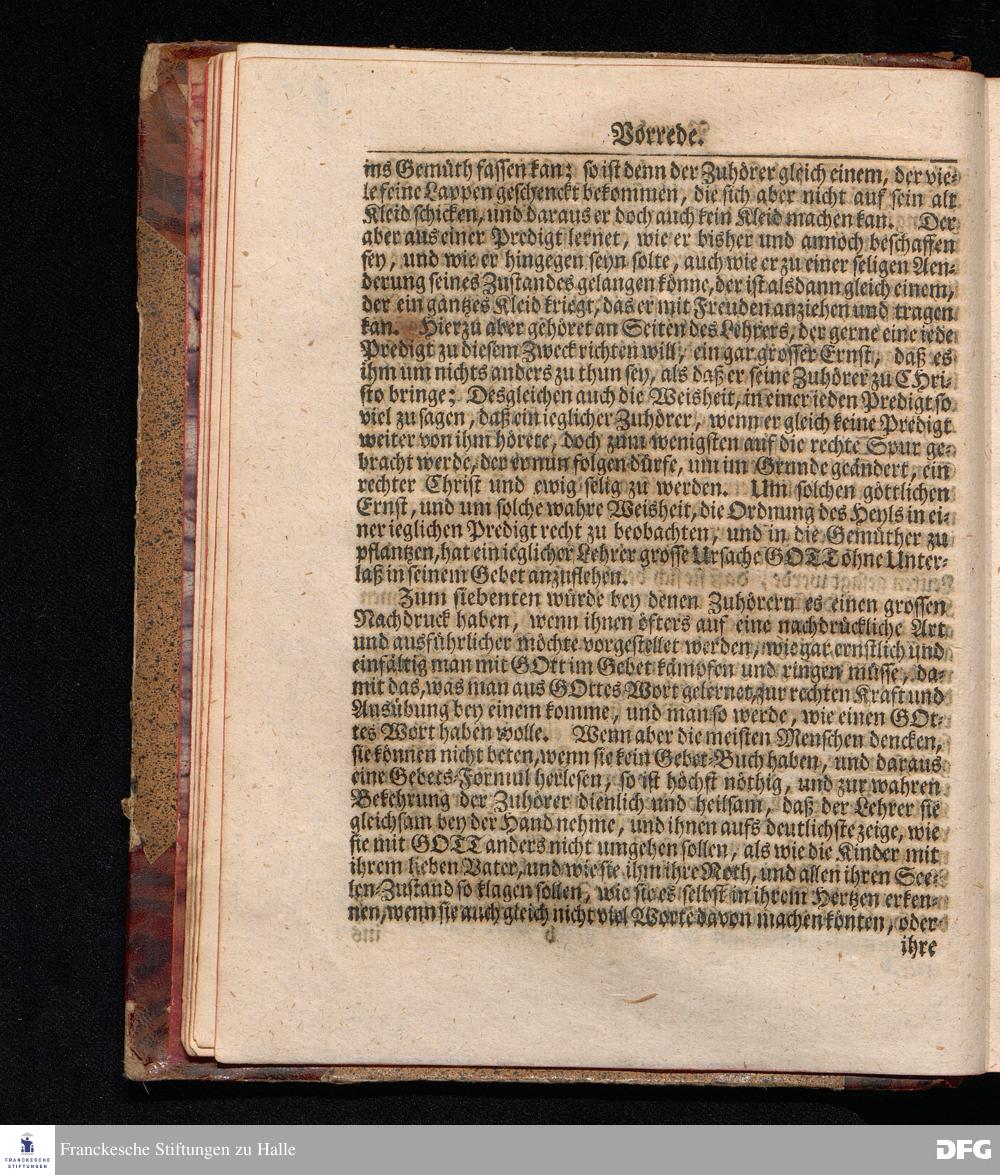 Vorrede.
ins Gemüth fassen kan; so ist denn der Zuhörer gleich einem, der vie-
le feine Lappen geschenckt bekommen, die sich aber nicht auf sein alt
Kleid schicken, und daraus er doch auch kein Kleid machen kan. Der
aber aus einer Predigt lernet, wie er bisher und annoch beschaffen
sey, und wie er hingegen seyn solte, auch wie er zu einer seligen Aen-
derung seines Zustandes gelangen könne, der ist alsdann gleich einem,
der ein gantzes Kleid kriegt, das er mit Freuden anziehen und tragen
kan. Hierzu aber gehöret an Seiten des Lehrers, der gerne eine iede
Predigt zu diesem Zweck richten will, ein gar grosser Ernst, daß es
ihm um nichts anders zu thun sey, als daß er seine Zuhörer zu CHri-
sto bringe; Desgleichen auch die Weisheit, in einer ieden Predigt so
viel zu sagen, daß ein ieglicher Zuhörer, wenn er gleich keine Predigt
weiter von ihm hörete, doch zum wenigsten auf die rechte Spur ge-
bracht werde, der er nun folgen dürfe, um im Grunde geändert, ein
rechter Christ und ewig selig zu werden. Um solchen göttlichen
Ernst, und um solche wahre Weisheit, die Ordnung des Heyls in ei-
ner ieglichen Predigt recht zu beobachten, und in die Gemüther zu
pflantzen, hat ein ieglicher Lehrer grosse Ursache GOTT ohne Unter-
laß in seinem Gebet anzuflehen.
Zum siebenten würde bey denen Zuhörern es einen grossen
Nachdruck haben, wenn ihnen öfters auf eine nachdrückliche Art
und ausführlicher möchte vorgestellet werden, wie gar ernstlich und
einfältig man mit GOtt im Gebet kämpfen und ringen müsse, da-
mit das, was man aus GOttes Wort gelernet, zur rechten Kraft und
Ausübung bey einem komme, und man so werde, wie einen GOt-
tes Wort haben wolle. Wenn aber die meisten Menschen dencken,
sie können nicht beten, wenn sie kein Gebet-Buch haben, und daraus
eine Gebets-Formul herlesen, so ist höchst nöthig, und zur wahren
Bekehrung der Zuhörer dienlich und heilsam, daß der Lehrer sie
gleichsam bey der Hand nehme, und ihnen aufs deutlichste zeige, wie
sie mit GOTT anders nicht umgehen sollen, als wie die Kinder mit
ihrem lieben Vater, und wie sie ihm ihre Noth, und allen ihren See-
len-Zustand so klagen sollen, wie sie es selbst in ihrem Hertzen erken-
nen, wenn sie auch gleich nicht viel Worte davon machen könten, oder
ihre
FRANCKESCHE
STIFTUNGEN
Franckesche Stiftungen zu Halle
DFG